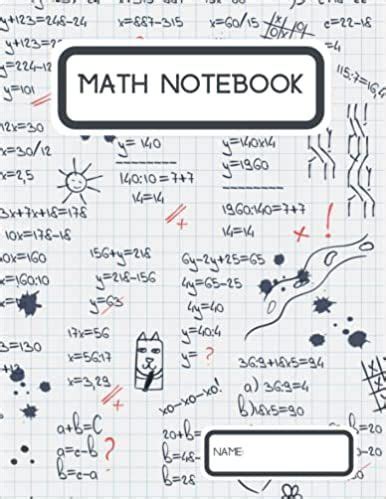 y+123=24
x=887-315
x=60/15
c=22-18
y=224-12
y=101
MATH NOTEBOOK
115:7=16,4
12x=30
x=30/12
x=2,5
y=140
140:10=7+7
14=14
y=140x14
y=1960
1960:140=7+7
14=14
3x+7x+18=178
10x=178-18
10x=160
x=160:10
156+y=218
y=218-156
y=63
6y-2y+25=65
4y=65-25
4y=40
y=40:4
y=?
17x=56
x=56:17
x=3,29
3x=130
xo-xo-xo!
36:9+18x5=94
a) 36:9=4
b) 18x5=90
a+b=c
a=c-b
b=c-a
?
20+b=
b=48-
b=28
NAME: